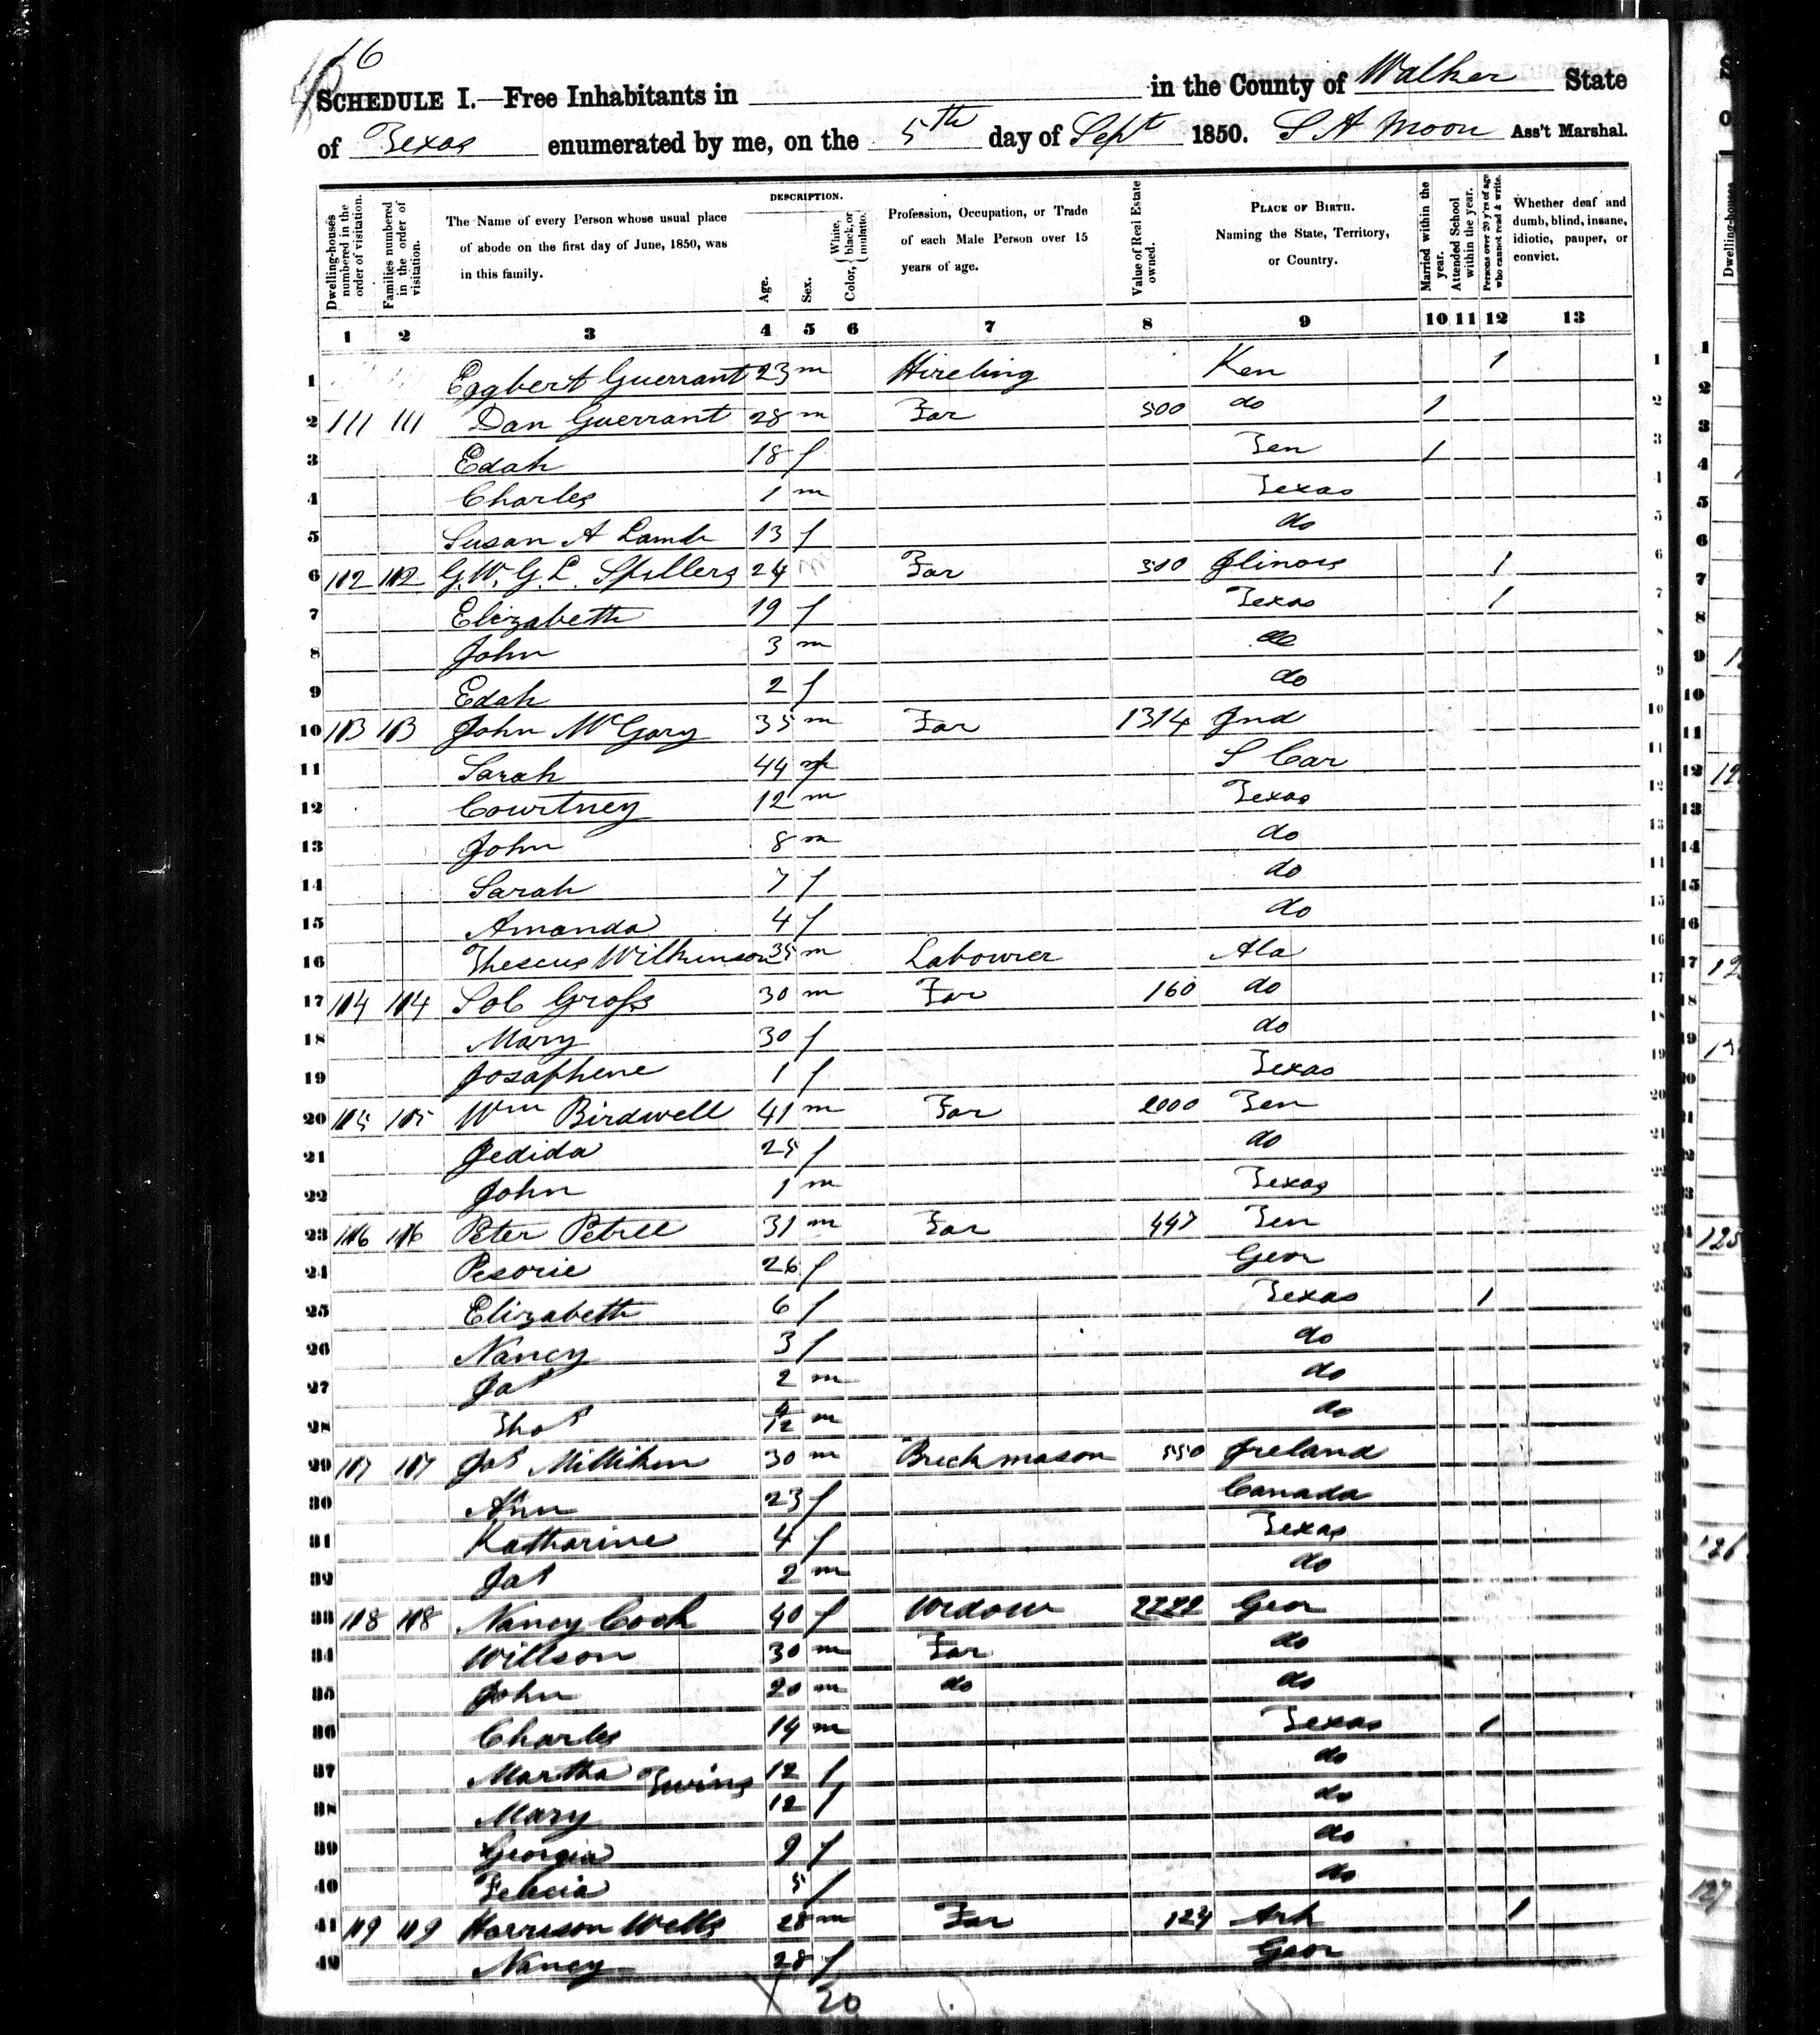 16
SCHEDULE I.—Free Inhabitants in in the County of Walker State
of Texas enumerated by me, on the 5th day of Sept 1850. S A Moon Ass't Marshal.
Dwelling-houses numbered in the order of visitation.
Families numbered in the order of visitation.
The Name of every Person whose usual place of abode on the first day of June, 1850, was in this family.
DESCRIPTION.
Age.
Sex.
Color, { White, black, or mulatto.
Profession, Occupation, or Trade of each Male Person over 15 years of age.
Value of Real Estate owned.
PLACE OF BIRTH. Naming the State, Territory, or Country.
Married within the year.
Attended School within the year.
Persons over 20 y'rs of age who cannot read & write.
Whether deaf and dumb, blind, insane, idiotic, pauper, or convict.
1 2 3 4 5 6 7 8 9 10 11 12 13
1 Egbert Guerrant 23 m Hireling Ken 1 1
2 111 111 Dan Guerrant 28 m Far 500 do 1 2
3 Edah 18 f Ten 1 3
4 Charles 1 m Texas 4
5 Susan A Lamb 13 f do 5
6 112 112 G. W. G. L. Spillers 24 m Far 300 Jlinois 1 6
7 Elizabeth 19 f Texas 1 7
8 John 3 m do 8
9 Edah 2 f do 9
10 113 113 John McGary 35 m Far 1314 Jnd 10
11 Sarah 44 f S Car 11
12 Courtney 12 m Texas 12
13 John 8 m do 13
14 Sarah 7 f do 14
15 Amanda 4 f do 15
16 Theseus Wilkinson 35 m Labourer Ala 16
17 114 114 Sol Gross 30 m Far 160 do 17
18 Mary 30 f do 18
19 Josaphene 1 f Texas 19
20 115 115 Wm Birdwell 41 m Far 2000 Ten 20
21 Jedida 25 f do 21
22 John 1 m Texas 22
23 116 116 Peter Petree 31 m Far 447 Ten
24 Pesorie 26 f Geor
25 Elizabeth 6 f Texas 1
26 Nancy 3 f do
27 Jas 2 m do
28 Thos 4/12 m do
29 117 117 Jas Milliken 30 m Brickmason 550 Jreland
30 Ann 23 f Canada
31 Katharine 4 f Texas
32 Jas 2 m do
33 118 118 Nancy Cook 40 f Widow 2222 Geor
34 Willson 30 m Far do
35 John 20 m do do
36 Charles 14 m Texas 1
37 Martha Twins 12 f do
38 Mary 12 f do
39 Georgia 9 f do
40 Felecia 5 f do
41 119 119 Harrison Wells 28 m Far 124 Ark 1
42 Nancy 28 f Geor
20